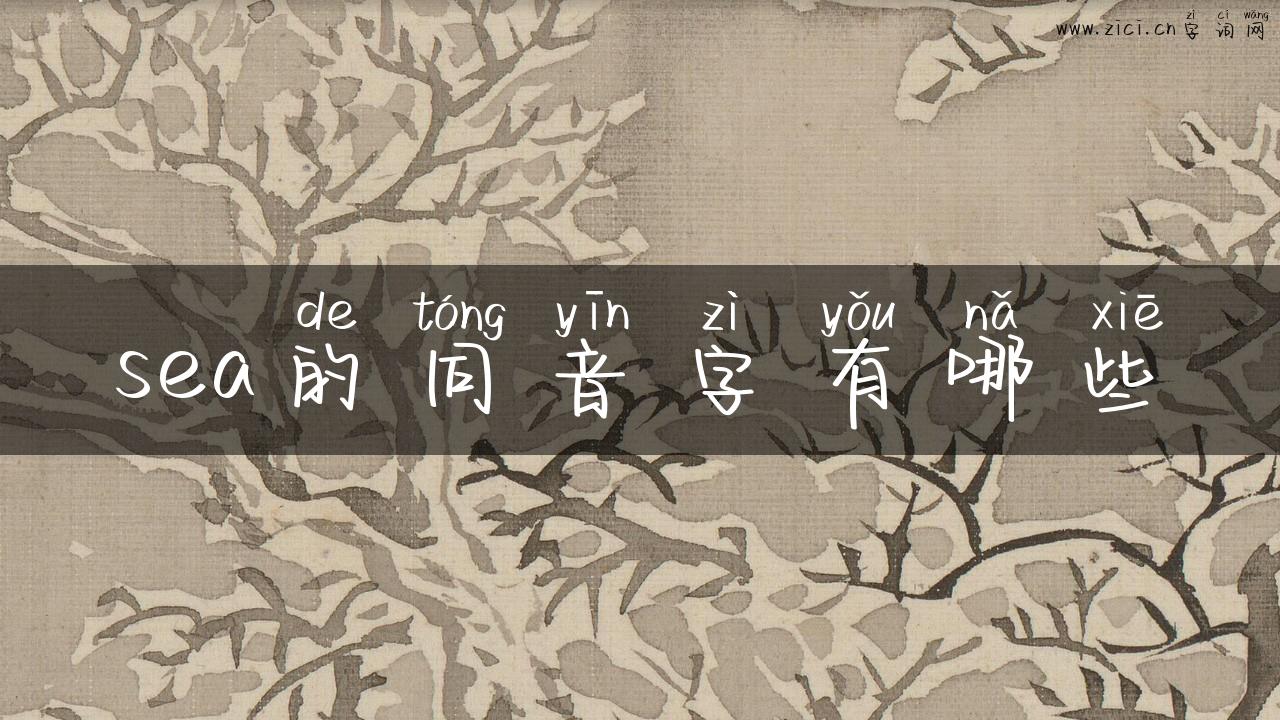 zì cí wǎng
www.zici.cn 字词网
de tóng yīn zì yǒu nǎ xiē
sea的同音字有哪些